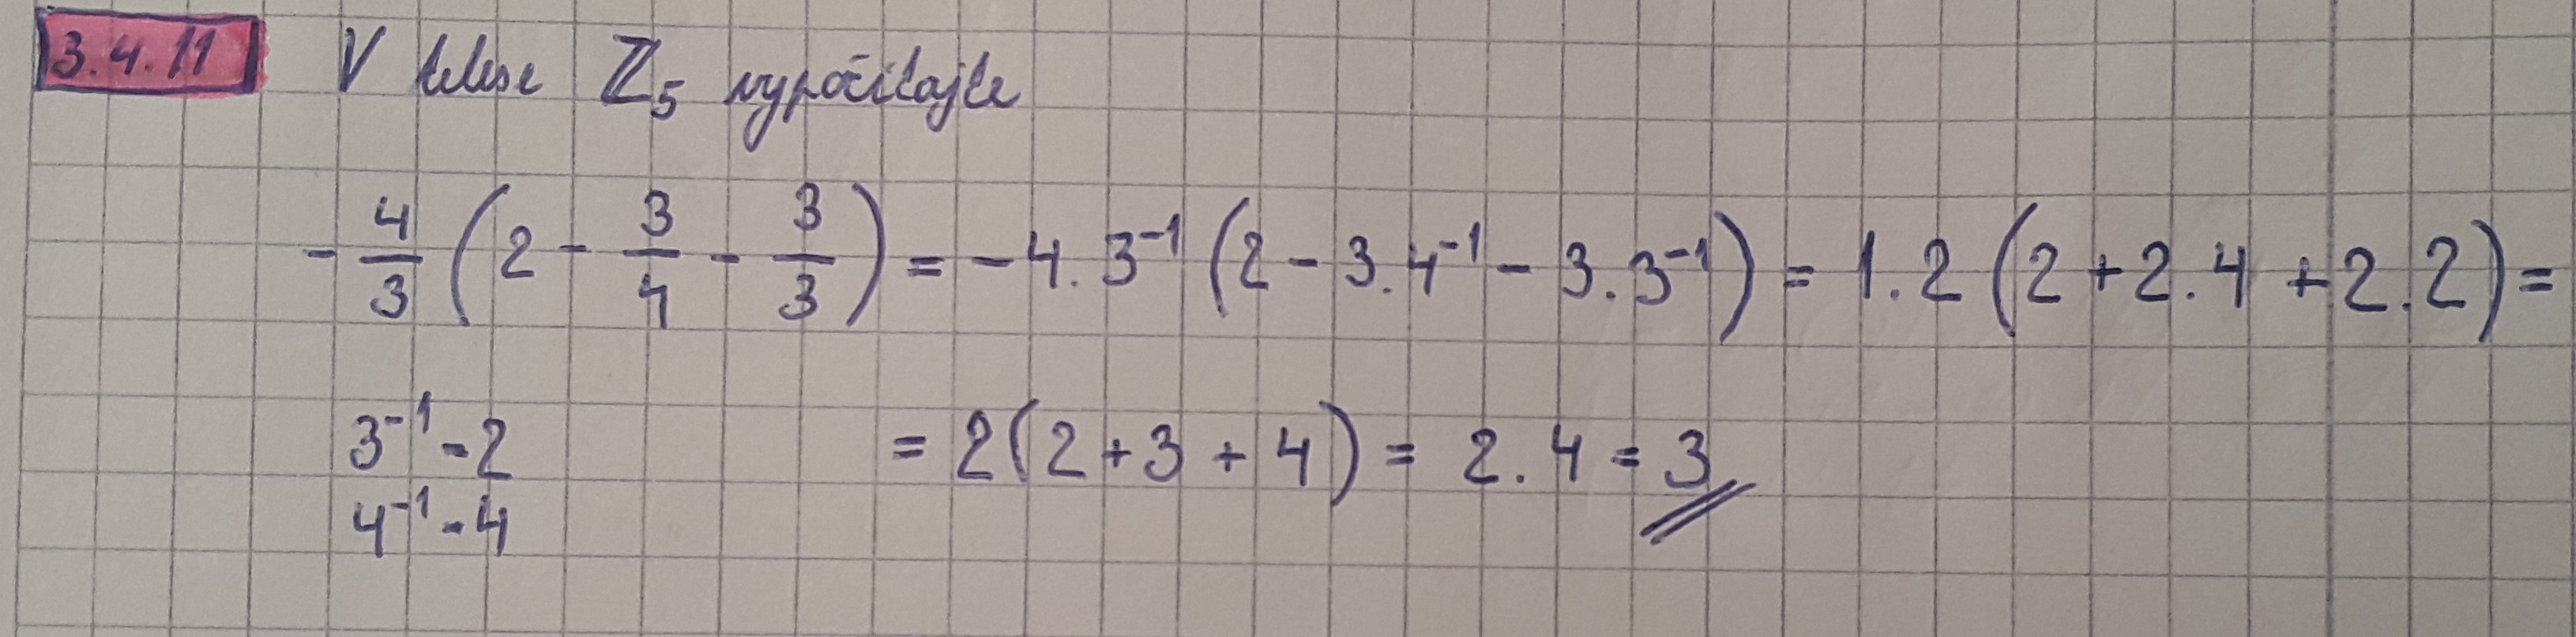 3.4.11 V telese ℤ₅ vypočítajte
-4/3 (2 - 3/4 - 3/3) = -4.3⁻¹ (2 - 3.4⁻¹ - 3.3⁻¹) = 1.2 (2 + 2.4 + 2.2) =
3⁻¹ = 2 = 2(2 + 3 + 4) = 2.4 = 3
4⁻¹ = 4